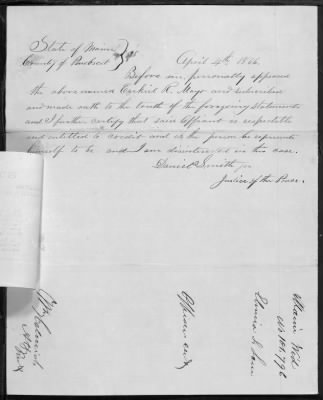 State of Maine
County of Penobscot } ss April 4th 1866.
Before me, personally appeared
the above named Ezekiel R. Mayo and subscribed
and made oath to the truth of the foregoing statements
and I further certify that said affiant is respectable
and entitled to credit and is the person he represents
himself to be and I am disinterested in this case.
Daniel Smith jr
Justice of the Peace.
Maine Wid
Affidavit